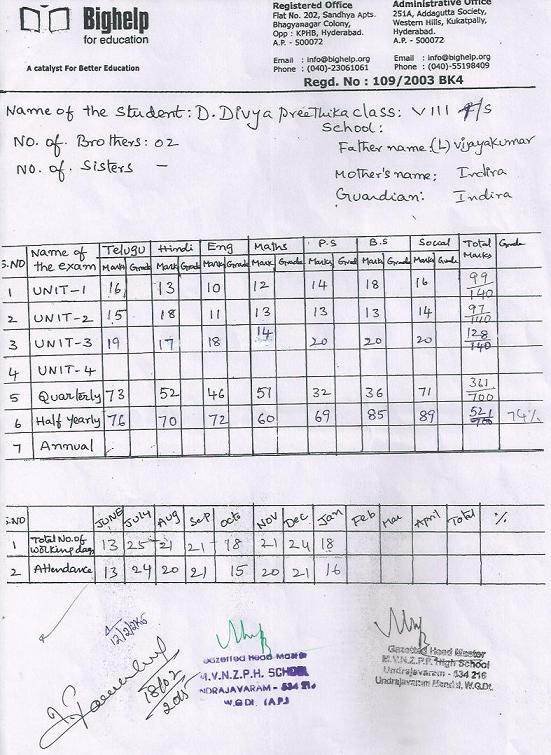 Bighelp
for education
A catalyst For Better Education
Registered Office
Flat No. 202, Sandhya Apts.
Bhagyanagar Colony,
Opp : KPHB, Hyderabad.
A.P. - 500072
Email : info@bighelp.org
Phone : (040)-23061061
Administrative Office
251A, Addagutta Society,
Western Hills, Kukatpally,
Hyderabad.
A.P. - 500072
Email : info@bighelp.org
Phone : (040)-55198409
Regd. No : 109/2003 BK4
Name of the Student: D. Divya preethika class: VIII
School:
NO. of. Brothers: 02
Father name: (L) vijayakumar
NO. of Sisters -
Mother's name; Indira
Guardian: Indira
S.NO Name of the exam Telugu Hindi Eng Maths P.S B.S Social Total Marks Grade
Mark Grade Mark Grade Mark Grade Mark Grade Mark Grad Mark Grade Mark Grade
1 UNIT-1 16 13 10 12 14 18 16 99/140
2 UNIT-2 15 18 11 13 13 13 14 97/140
3 UNIT-3 19 17 18 14 20 20 20 128/140
4 UNIT-4
5 Quarterly 73 52 46 51 32 36 71 361/700
6 Half Yearly 76 70 72 60 69 85 89 521/700 74%
7 Annual
S.NO JUNE July Aug Sep Octo Nov Dec Jan Feb Mar April Total %
1 Total No. of working day 13 25 21 21 18 21 24 18
2 Attendance 13 24 20 21 15 20 21 16
18/02
2015
Gazetted Head Master
M.V.N.Z.P.H. SCHOOL
UNDRAJAVARAM - 534 216
W.G.Dt. (A.P.)
Gazetted Head Master
M.V.N.Z.P.P. High School
Undrajavaram - 534 216
Undrajavaram Mandal, W.G.Dt.